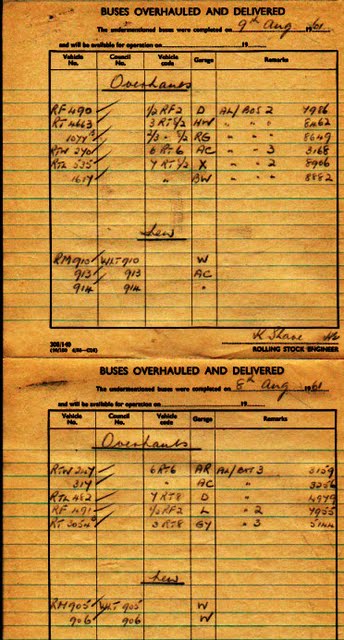 BUSES OVERHAULED AND DELIVERED
The undermentioned buses were completed on 9th Aug 1961
and will be available for operation on 19
Vehicle No. Council No. Vehicle code Garage Remarks
Overhauls
RF 490 1/2 RF2 D AL/BOS 2 7986
RT 4663 3 RT 1/2 HW " " " 8462
1077 2/3 " 1/2 RG " " " 8649
RTW 240 6 RT6 AC " " 3 3168
RTL 535 7 RT 1/2 X " " 2 8906
1657 " BW " " 8882
New
RM 910 WLT 910 W
913 913 AC
914 914 "
K Shave
ROLLING STOCK ENGINEER
BUSES OVERHAULED AND DELIVERED
The undermentioned buses were completed on 8th Aug 1961
and will be available for operation on 19
Vehicle No. Council No. Vehicle code Garage Remarks
Overhauls
RTW 247 6 RT6 AR AL/BXT 3 3159
317 " AC " 3256
RTL 482 7 RT8 D " 4979
RF 491 1/2 RF2 L " 2 7955
RT 3054 3 RT8 GY " 3 5144
New
RM 905 WLT 905 W
906 906 W